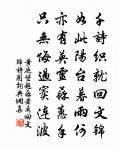 千詩織就回文錦
如此陽台暮雨何
亦有英靈蘇蕙手
只無悔過竇連波
黄庭堅題蘇若蘭回文
錦詩圖詞典網集